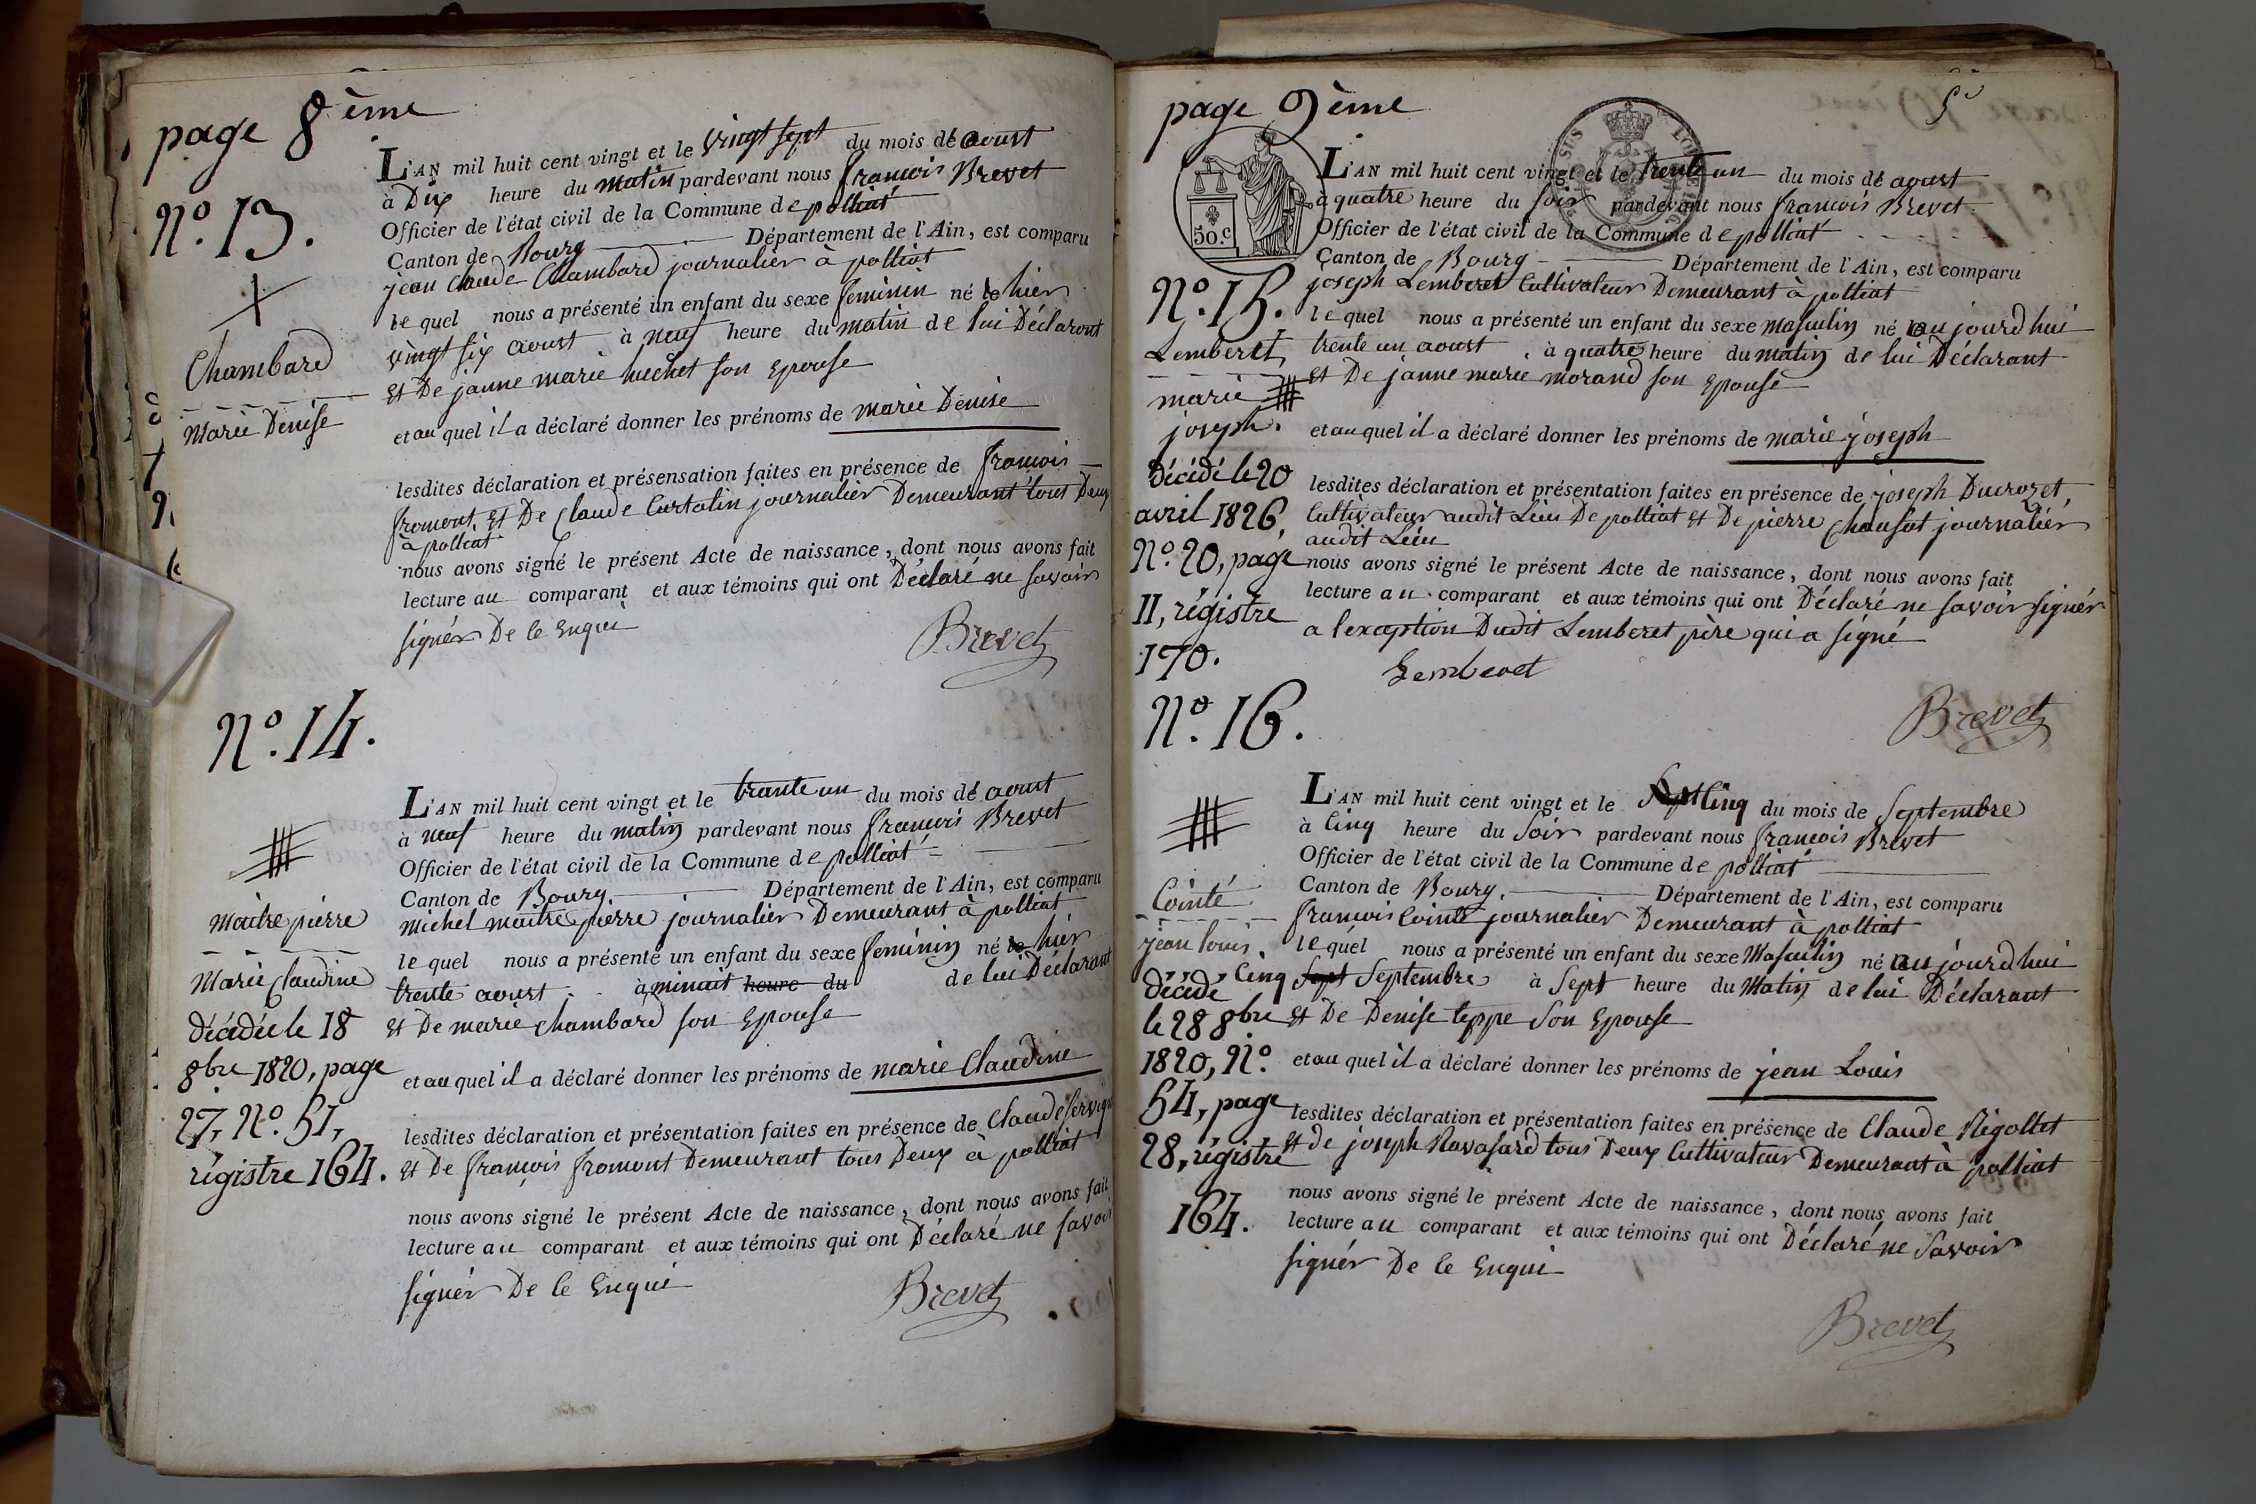 page 8ème
N.º 13.
Chambard
Marie Denise
L'AN mil huit cent vingt et le vingt sept du mois de aoust
à Dix heure du matin pardevant nous françois Brevet
Officier de l'état civil de la Commune de polliat
Canton de Bourg Département de l'Ain, est comparu
jean Claude Chambard journalier à polliat
lequel nous a présenté un enfant du sexe feminin né le hier
vingt six aoust à neuf heure du matin de lui Déclarant
et De janne marie michet son Epouse
et auquel il a déclaré donner les prénoms de marie Denise
lesdites déclaration et présensation faites en présence de françois
fromont et De Claude Curtalin journalier Demeurant tous Deux
à polliat
nous avons signé le présent Acte de naissance, dont nous avons fait
lecture au comparant et aux témoins qui ont Déclaré ne savoir
signér De ce Enquis
Brevet
N.º 14.
maitre pierre
Marie Claudine
décédée le 18
8bre 1820, page
27, N.º 51,
régistre 164.
L'AN mil huit cent vingt et le trante un du mois de aoust
à neuf heure du matin pardevant nous françois Brevet
Officier de l'état civil de la Commune de polliat
Canton de Bourg. Département de l'Ain, est comparu
michel maitre pierre journalier Demeurant à polliat
lequel nous a présenté un enfant du sexe feminin né le hiér
trente aoust à minuit heure du de lui Déclarant
et De marie Chambard son Epouse
et auquel il a déclaré donner les prénoms de marie Claudine
lesdites déclaration et présentation faites en présence de Claude
et De françois fromont Demeurant tous Deux à polliat
nous avons signé le présent Acte de naissance, dont nous avons fait
lecture au comparant et aux témoins qui ont Déclaré ne savoir
signér De ce Enqui
Brevet
page 9ème
50.c
N.º 15.
Lemberet
marie
joseph.
Décédé le 20
avril 1826,
N.º 20, page
II, régistre
170.
L'AN mil huit cent vingt et le trente un du mois de aoust
à quatre heure du soir pardevant nous françois Brevet
Officier de l'état civil de la Commune de polliat
Canton de Bourg Département de l'Ain, est comparu
joseph Lemberet Cultivateur Demeurant à polliat
lequel nous a présenté un enfant du sexe masculin né aujourdhui
trente un aoust, à quatre heure du matin de lui Déclarant
et De janne marie morand son Epouse
et auquel il a déclaré donner les prénoms de marie joseph
lesdites déclaration et présentation faites en présence de joseph Ducrozet,
Cultivateur audit Lieu De polliat et De pierre Chanfat journaliér
audit Lieu
nous avons signé le présent Acte de naissance, dont nous avons fait
lecture au comparant et aux témoins qui ont Déclaré ne savoir signér
a l'exception Dudit Lemberet père qui a signé
Lemberet
Brevet
N.º 16.
Cointé
jean louis.
décédé
le 28 8bre
1820, N.º
54, page
28, régistre
164.
L'AN mil huit cent vingt et le Sept Cinq du mois de Septembre
à Cinq heure du Soir pardevant nous françois Brevet
Officier de l'état civil de la Commune de polliat
Canton de Bourg. Département de l'Ain, est comparu
françois Cointé journalier Demeurant à polliat
lequel nous a présenté un enfant du sexe Masculin né aujourdhui
Cinq Sept Septembre à Sept heure du Matin de lui Déclarant
et De Denise teppe Son Epouse
et auquel il a déclaré donner les prénoms de jean Louis
lesdites déclaration et présentation faites en présence de Claude Rigollet
et de joseph Ravasard tous Deux Cultivateur Demeurant à polliat
nous avons signé le présent Acte de naissance, dont nous avons fait
lecture au comparant et aux témoins qui ont Déclaré ne Savoir
signér De Ce Enqui
Brevet